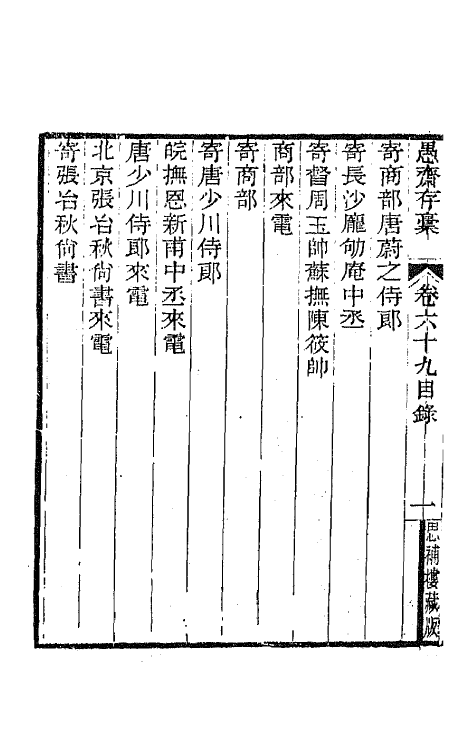 愚齋存稾
卷六十九目錄
一
思補樓藏版
寄商部唐蔚之侍郎
寄長沙龐劬庵中丞
寄督周玉帥蘇撫陳筱帥
商部來電
寄商部
寄唐少川侍郎
皖撫恩新甫中丞來電
唐少川侍郎來電
北京張冶秋尙書來電
寄張冶秋尙書